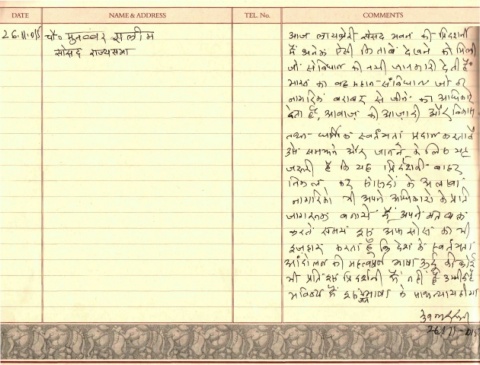 DATE NAME & ADDRESS TEL. No. COMMENTS
26-11-015 चौ० मुनव्वर सलीम
सांसद राज्यसभा
आज लायब्रेरी संसद भवन की प्रदर्शनी
में अनेक ऐसी किताबें देखने को मिली
जो संविधान की नयी जानकारी देती हैं
भारत का यह महान संविधान जो हर
नागरिक बराबर से जीने का अधिकार
देता है, आवाज़ की आज़ादी और
धार्मिक स्वतंत्रता प्रदान करता है
उसे समझने और जानने के लिए यह
ज़रूरी है कि यह प्रदर्शनी बाहर
निकल कर सांसदों के अलावा
नागरिकों को भी अपने अधिकारों के प्रति
जागरूक बनाये मैं अपने
करते समय इस अफसोस का भी
इज़हार करता हूँ कि देश के स्वतंत्रता
आंदोलन की महत्वपूर्ण भाषा उर्दू की कोई
भी प्रति इस प्रदर्शनी में नहीं है उम्मीद है
भविष्य में इस भाषा के साथ न्याय होगा
26/11-015